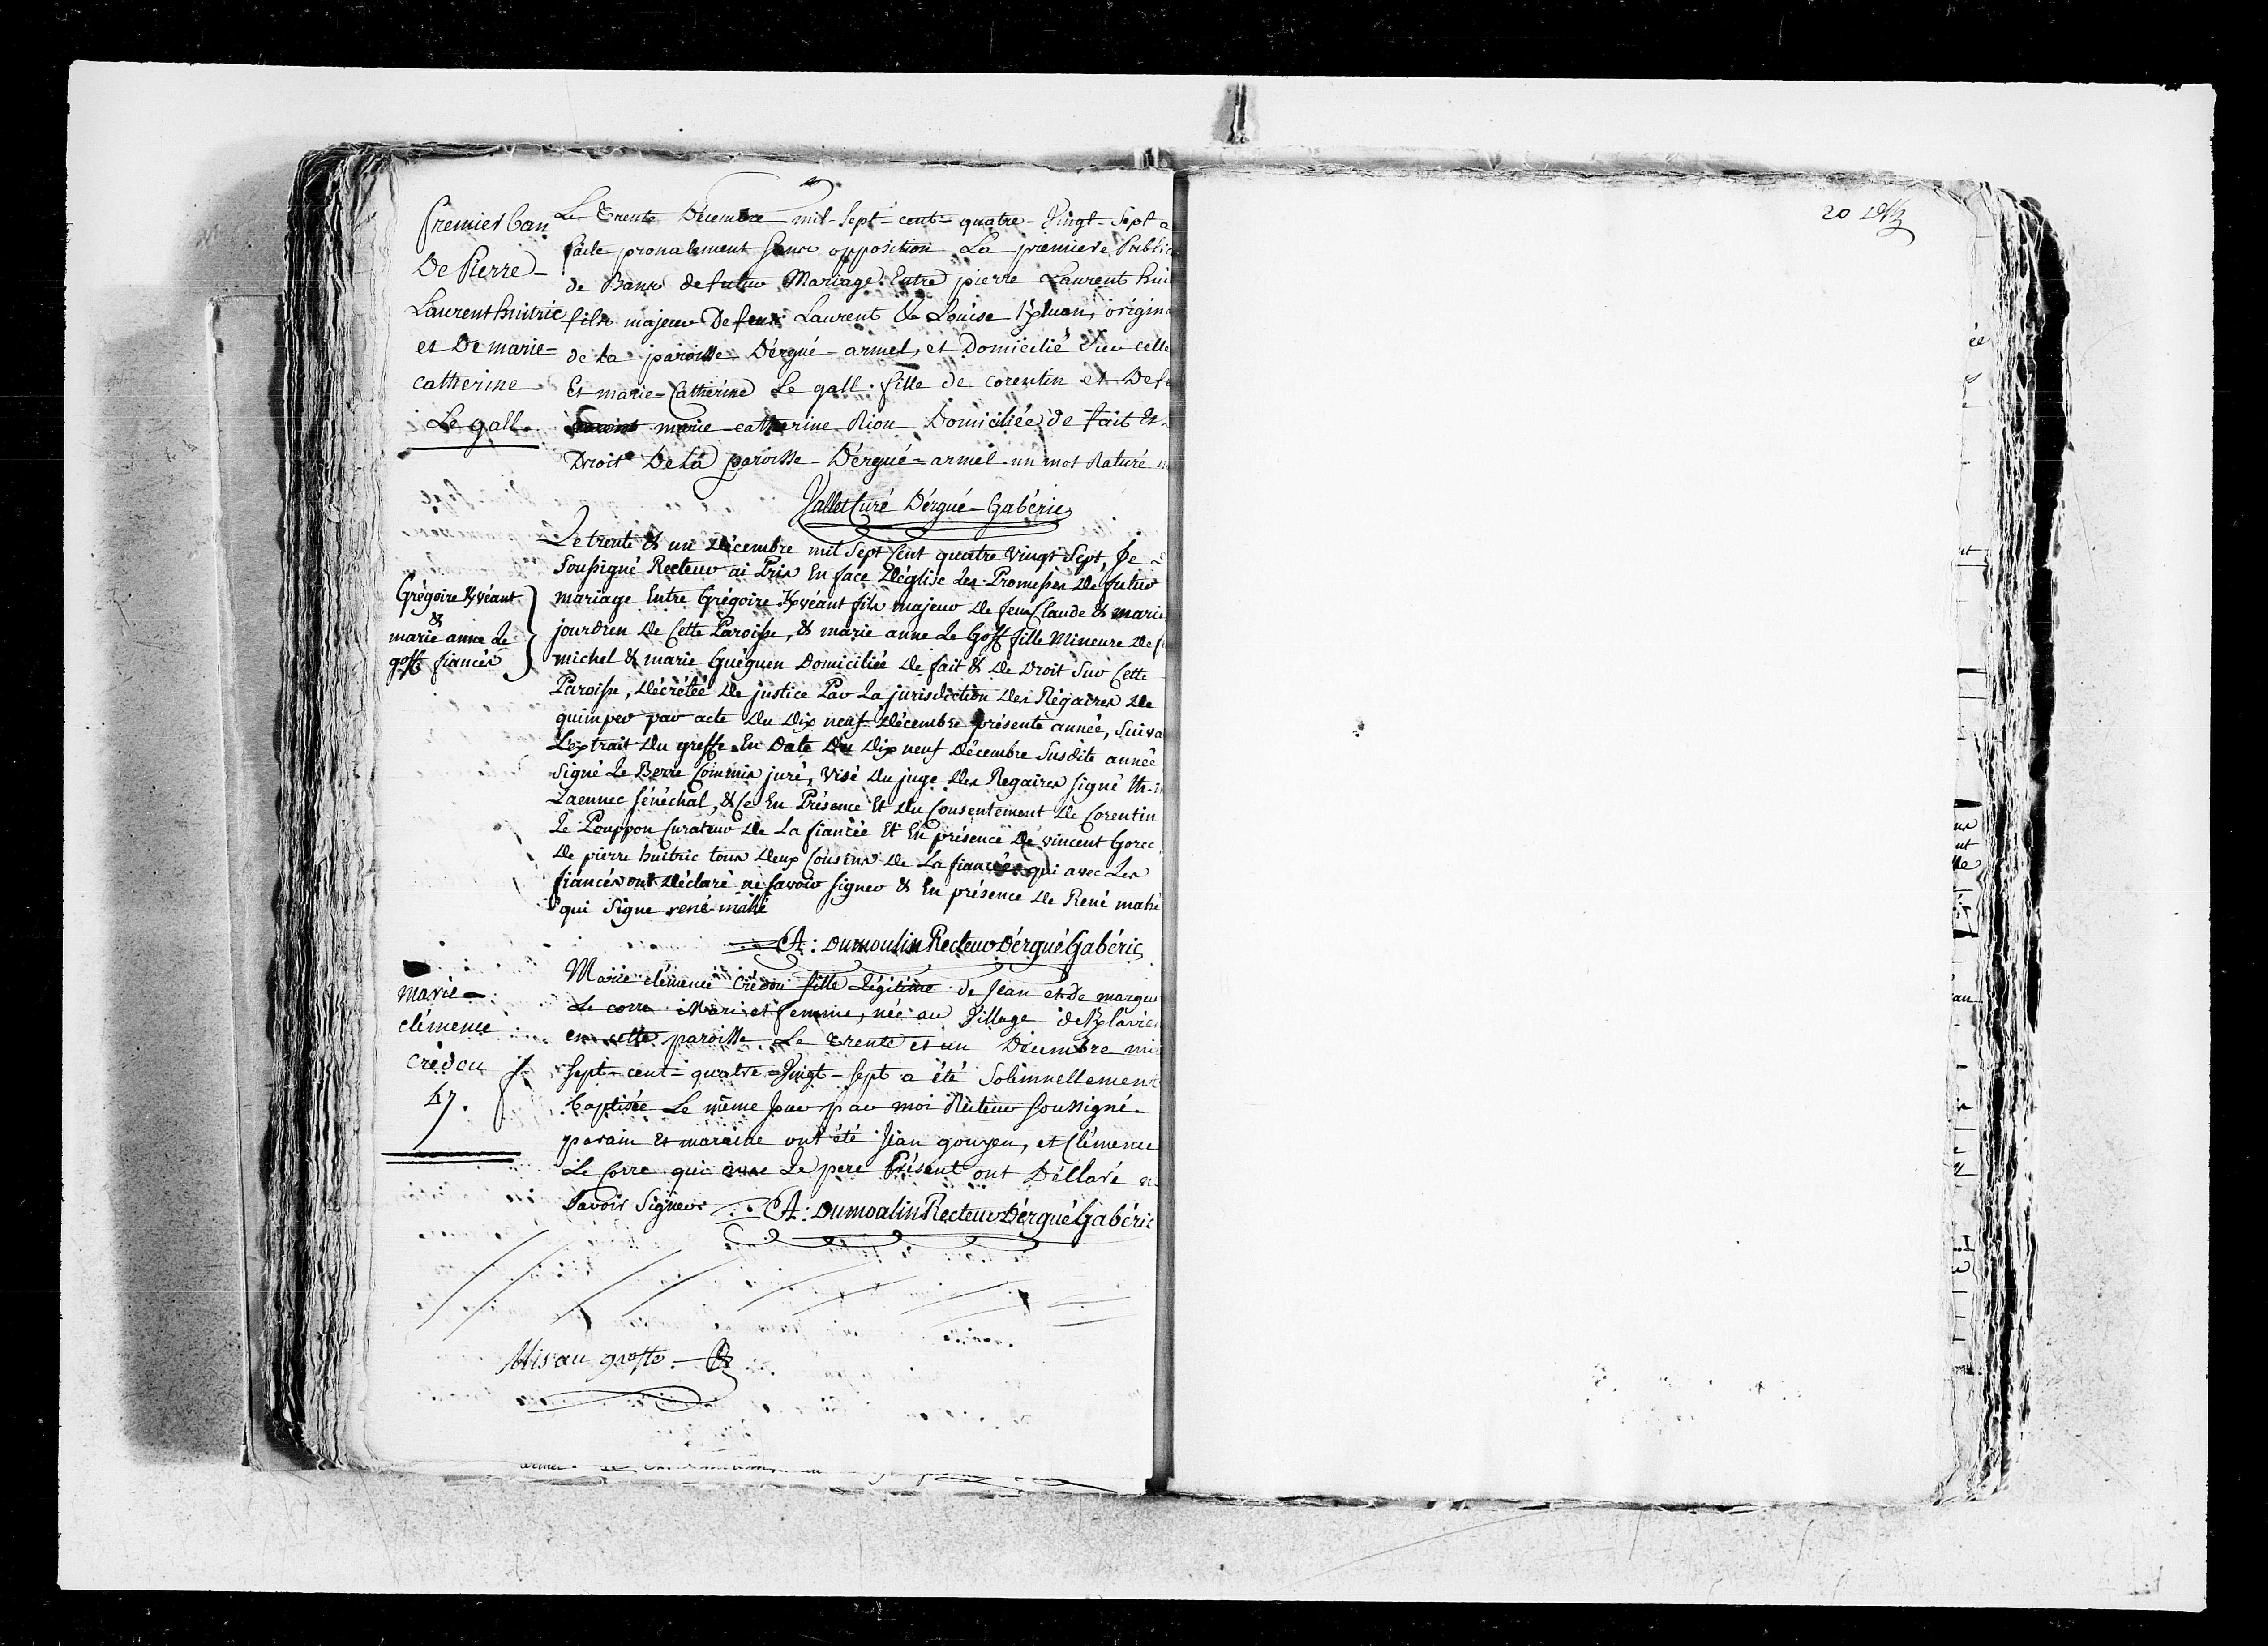 20 Dern
premier ban
De pierre
Laurent huitric
et De marie=
catherine
Le gall.
Le trente Décembre mil-Sept-cent-quatre-Vingt-Sept a
faite pronalement sans opposition La premiere Public
de Bans de futur Mariage Entre pierre Laurent hui
fils majeur De feux Laurent & Louise Kluan, origin
de la paroisse D'ergué-armel, et Domicilié Sur celle
Et marie-Catherine Le gall. fille de corentin et De f
marie-catherine Riou Domiciliée de fait Et
Droit De La paroisse D'ergué-armel. un mot raturé
Vallet Curé D'ergué-Gabéric
Grégoire Kvéant
&
marie anne Le
goff fiancés
Le trente & un Décembre mil Sept Cent quatre vingt Sept, Je
Soussigné Recteur ai Pris En face D'église Les Promesses De futur
mariage Entre Grégoire Kvéant fils majeur de feu Claude & marie
jourdren De Cette Paroisse, & marie anne Le Goff fille Mineure De f
michel & marie Guéguen Domiciliée De fait & De Droit Sur Cette
Paroisse, Décrétée De justice Par La jurisdiction Des Régaires De
quimper par acte Du Dix neuf Décembre présente année, Suiva
L'extrait Du greffe En Date Du Dix neuf Décembre Susdite année
Signé Le Berre Commis juré, visé Du juge Des Regaires signé th-
Laennec Sénéchal, & Ce En Présence Et Du Consentement De Corentin
Le Pouppon Curateur De La fiancée Et En présence De vincent Gorec
De pierre huitric tous Deux Cousins De La fiancée qui avec Les
fiancés ont Déclaré ne savoir signer & En présence De René mahé
qui Signe rené mahé
A: Dumoulin Recteur D'ergué Gabéric
marie-
clémence
crédou
47.
Marie clémence Crédou fille Légitime de Jean et De margue
Le corre Mari et femme, née au Village de Klavie
en cette paroisse Le trente et un Décembre mi
Sept-cent-quatre-Vingt-Sept a été Solemnellement
baptisée Le même Jour par moi Recteur Soussigné
parain et maraine ont été Jean gouzen, et Clémence
Le Corre qui avec Le pere Présent ont Déclaré n
Savoir Signer A: Dumoulin Recteur D'ergué Gabéric
Mis au greffe